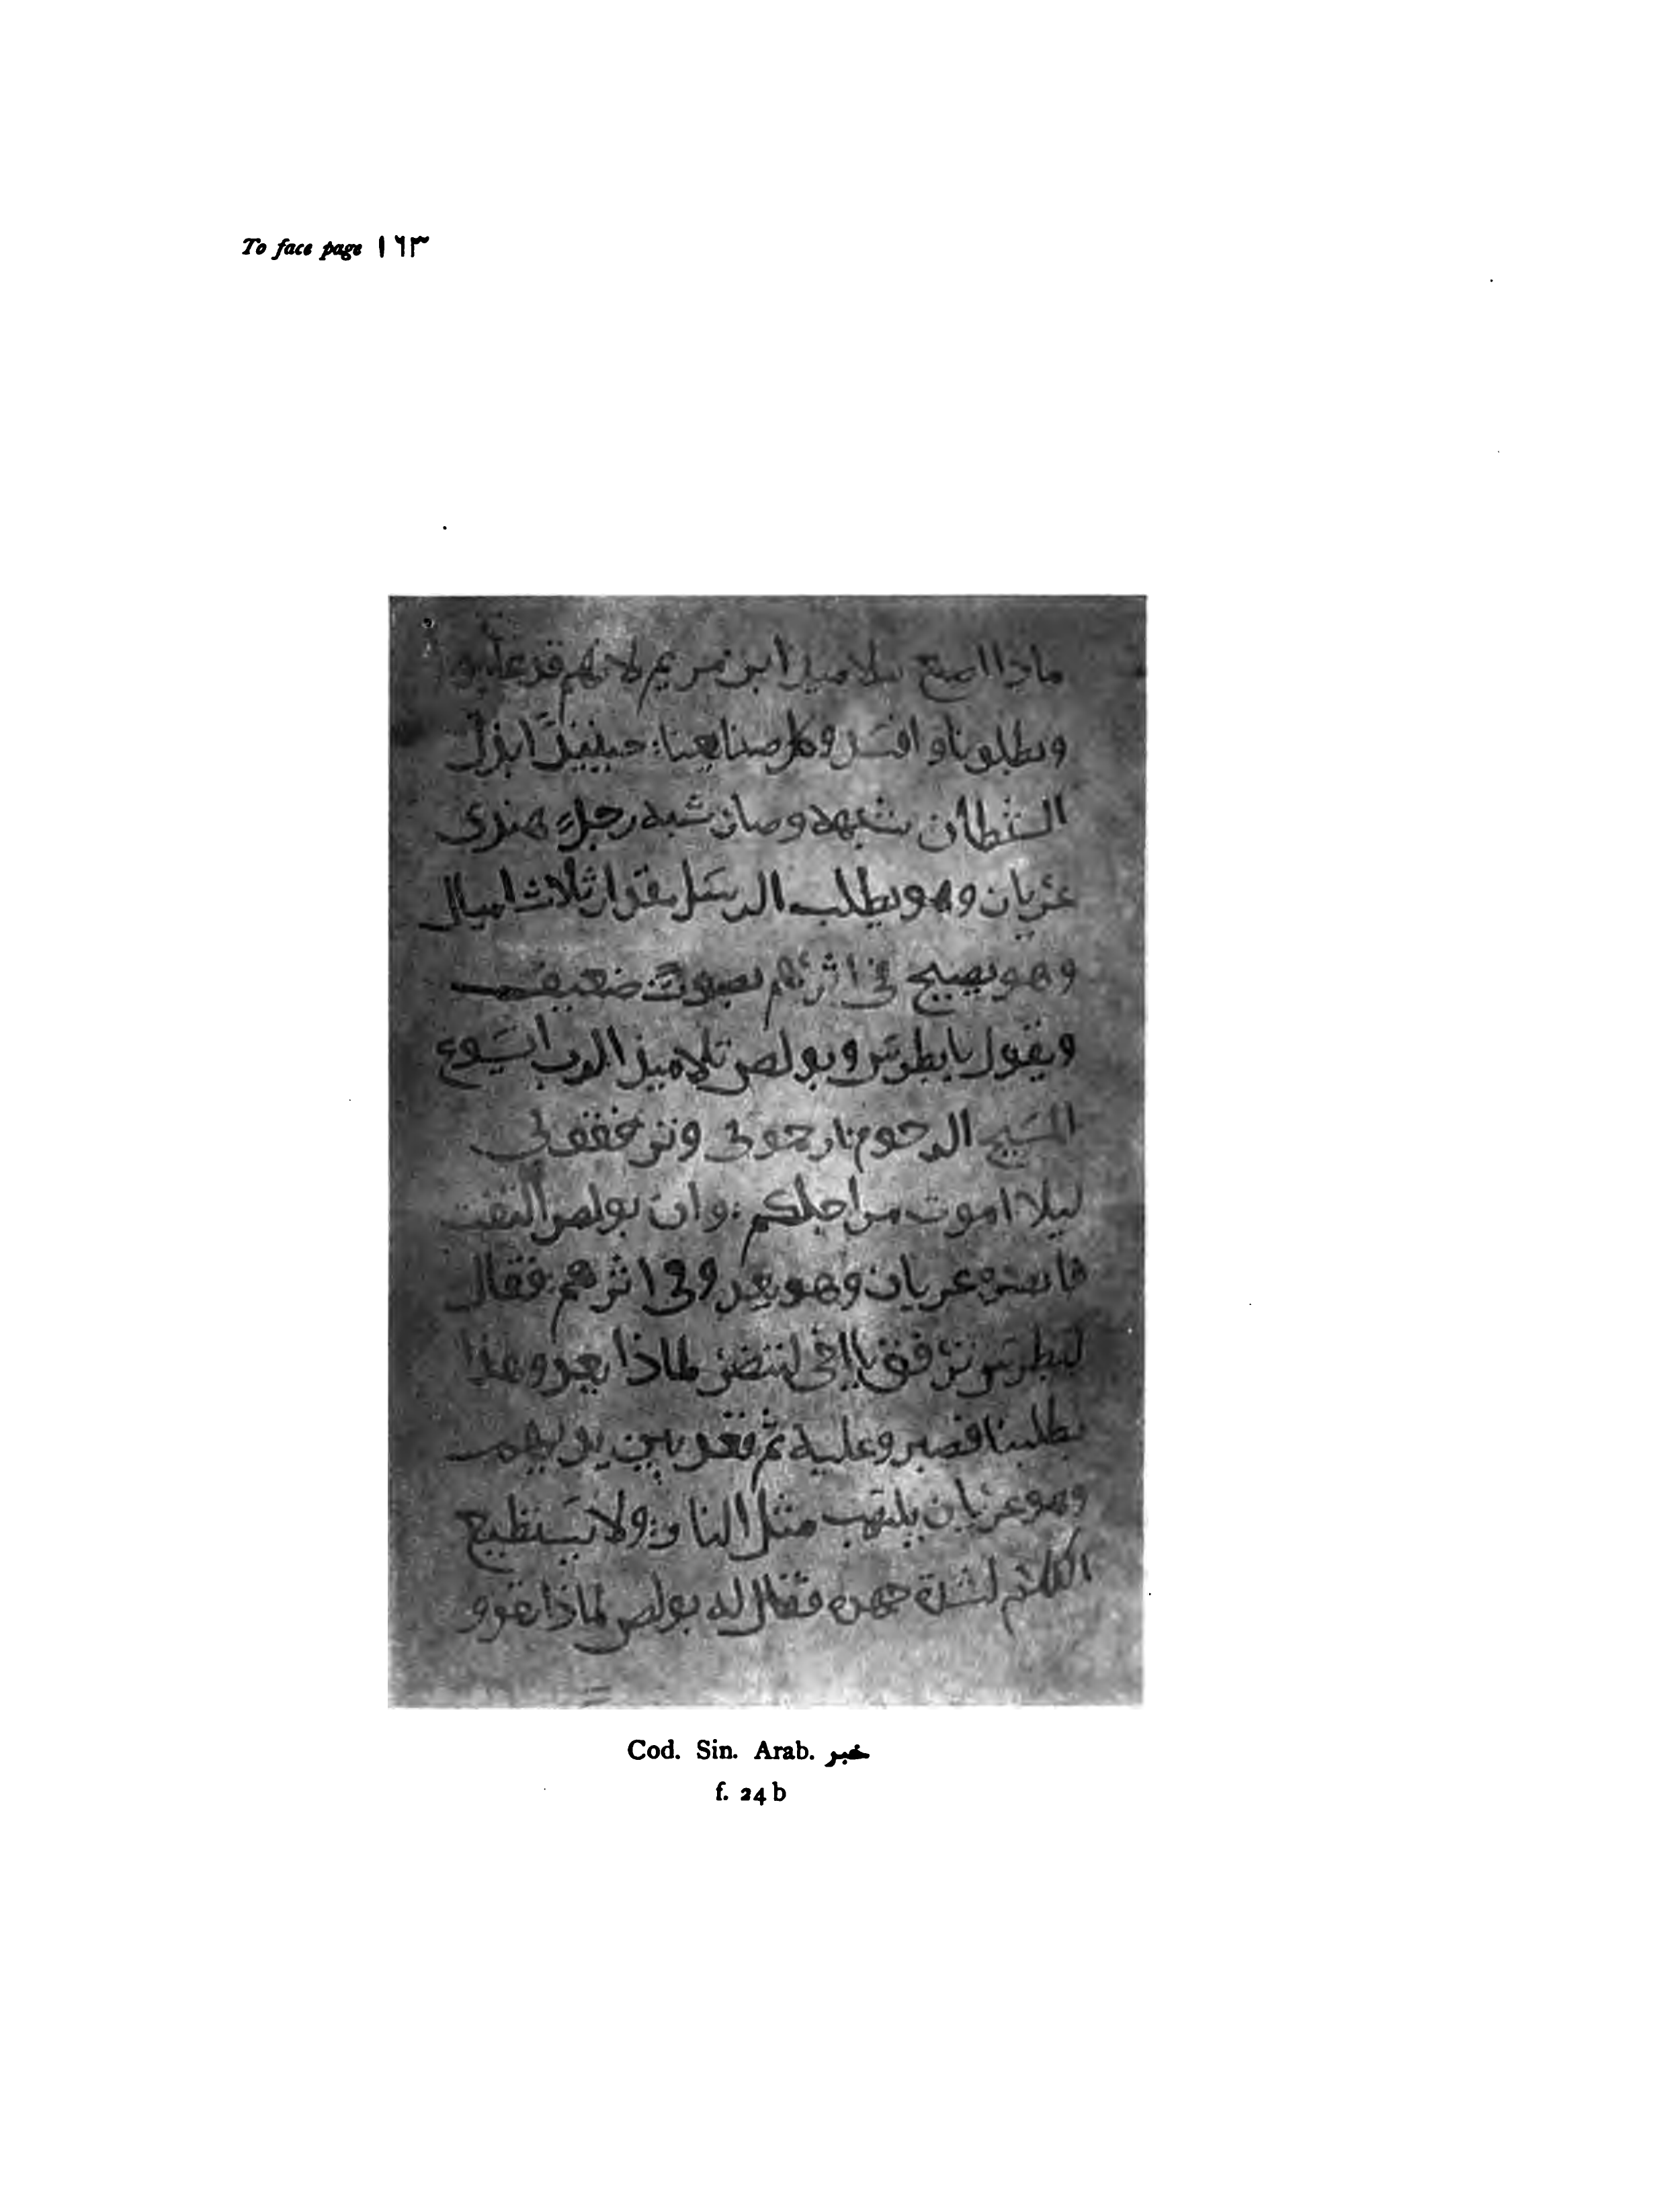 To face page ١٦٣
ماذا اصنع بتلاميذ ابن مريم لانهم قد غلبونا
وبطلونا وافسدو كل صنايعنا: حينيذ ابدل
الشيطان شبهه وصار شبه رجل هندي
عريان وهو يطلب الرسل بقدار ثلاث اميال
وهو يصيح في اثرهم بصوت ضعيف
ويقول يابطرس وبولص تلاميذ الرب ايسوع
المسيح الرحوم ارحموني وترفقو لي
ليلا اموت من اجلكم: وان بولص التفت
فابصره عريان وهو يعدو في اثرهم: فقال
لبطرس ترفق يااخي لننضر لماذا يعدو هذا
يطلبنا فصبرو عليه ثم قعد بين يديهم
وهو عريان يلتهب مثل النار: ولا يستطيع
الكلام لشدة جهده فقال له بولص لماذا تعدو
Cod. Sin. Arab. خبر
f. 24 b